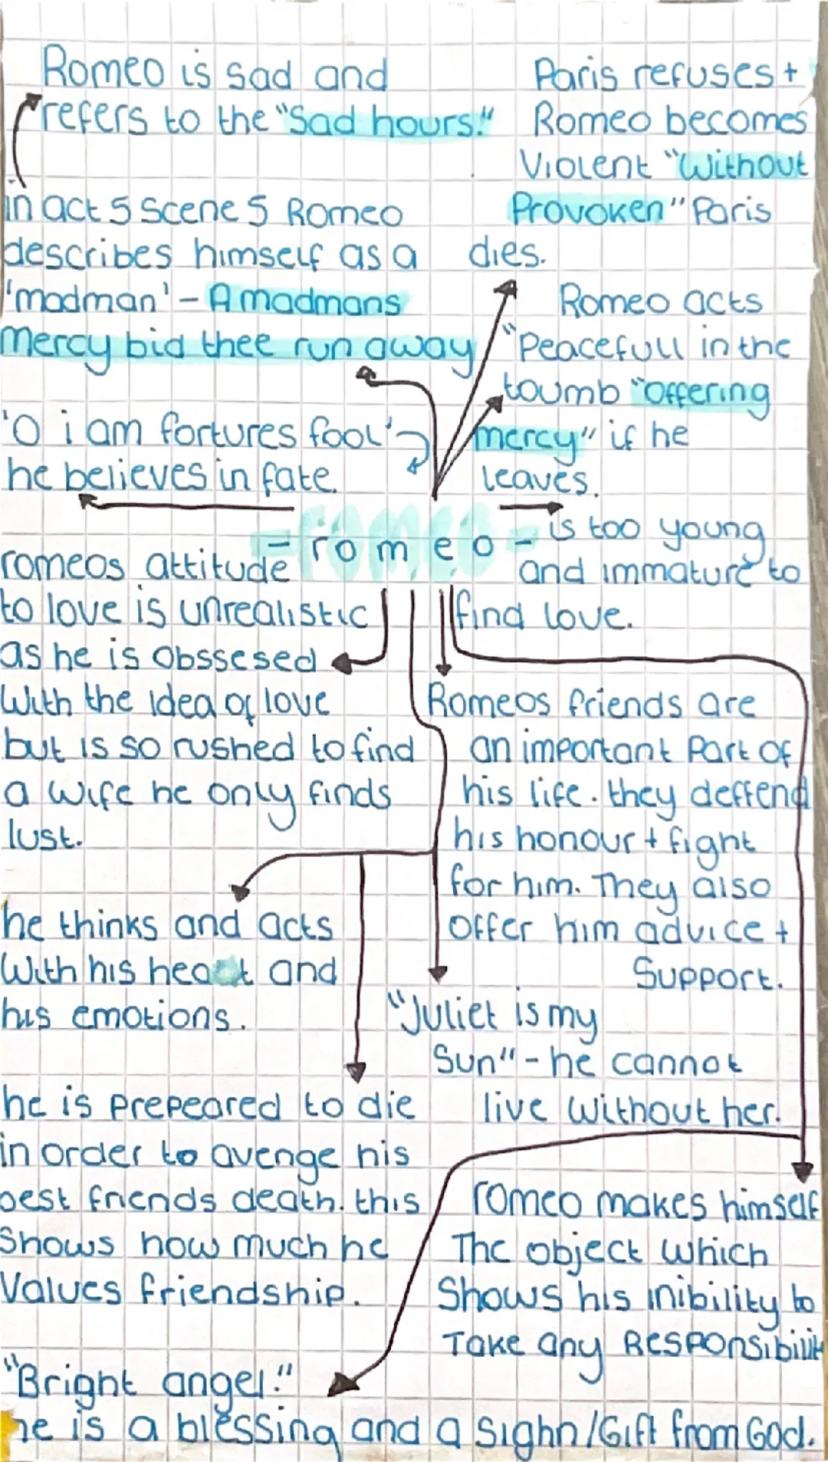 Romeo is sad and
refers to the "Sad hours."
in act 5 scene 5 Romeo
describes himself as a
'madman' - A madmans
Mercy bid thee run away
'O i am fortures fool'
he believes in fate.
Paris refuses +
Romeo becomes
Violent "Without
Provoken" Paris
dies.
Romeo acts
"Peacefull in the
toumb "offering
mercy" if he
leaves.
- romeo -
is too young
and immature to
find love.
romeos attitude
to love is unrealistic
as he is obssesed
With the idea of love
but is so rushed to find
a wife he only finds
lust.
Romeos friends are
an important part of
his life. they deffend
his honour + fight
for him. They also
offer him advice +
Support.
he thinks and acts
With his heart and
his emotions.
"Juliet is my
Sun" - he cannot
live without her.
he is prepeared to die
in order to avenge his
best friends death. this
Shows how much he
Values friendship.
romeo makes himself
The object which
Shows his inibility to
Take any Responsibilit
"Bright angel."
he is a blessing and a sighn/Gift from God.